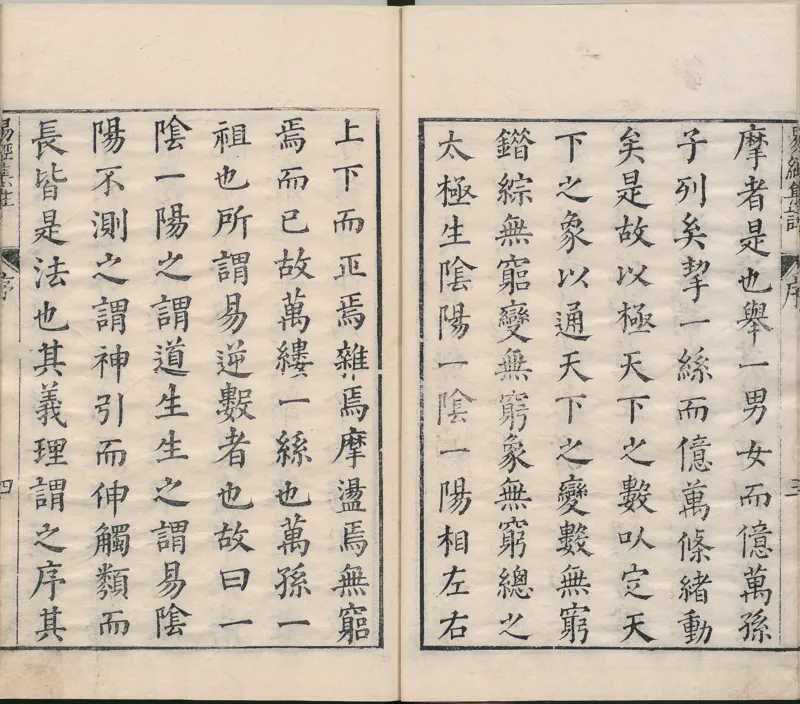 摩者是也舉一男女而億萬孫
子列矣挈一絲而億萬條緒動
矣是故以極天下之數以定天
下之象以通天下之變數無窮
錯綜無窮變無窮象無窮總之
太極生陰陽一陰一陽相左右
上下而正焉雜焉摩盪焉無窮
焉而已故萬縷一絲也萬孫一
祖也所謂易逆數者也故曰一
陰一陽之謂道生生之謂易陰
陽不測之謂神引而伸觸類而
長皆是法也其義理謂之序其
易經集註
序
四